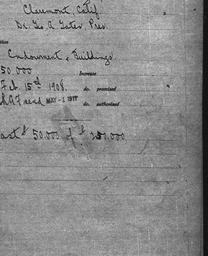 Claremont, Calif
Dr. Geo. A. Gates, Pres.
Endowment & Buildings
50.000
Increase
Feb. 15th 1908.
do. promised
MAY - 1 1911
do. authorized
last $ 50.000 of $